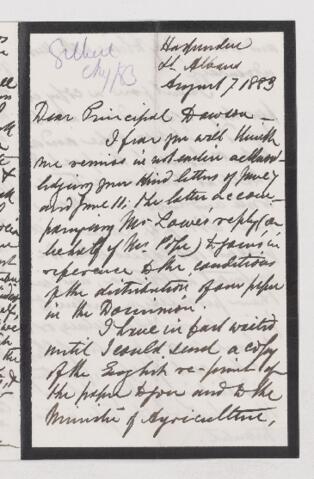 Gilbert
Harpenden
St. Albans
August 7 1883
Dear Principal Dawson -
I fear you will think
me remiss in not earlier acknow-
ledging your kind letters of June 7
and June 11; the latter accom-
panying Mr Lowes reply (on
behalf of Mr. Pope) to yours in
reference to the conditions
of the distribution of our paper
in the Dominion.
I have in fact waited
until I could send a copy
of the English re-print of
the paper to you and to the
Minister of Agriculture,